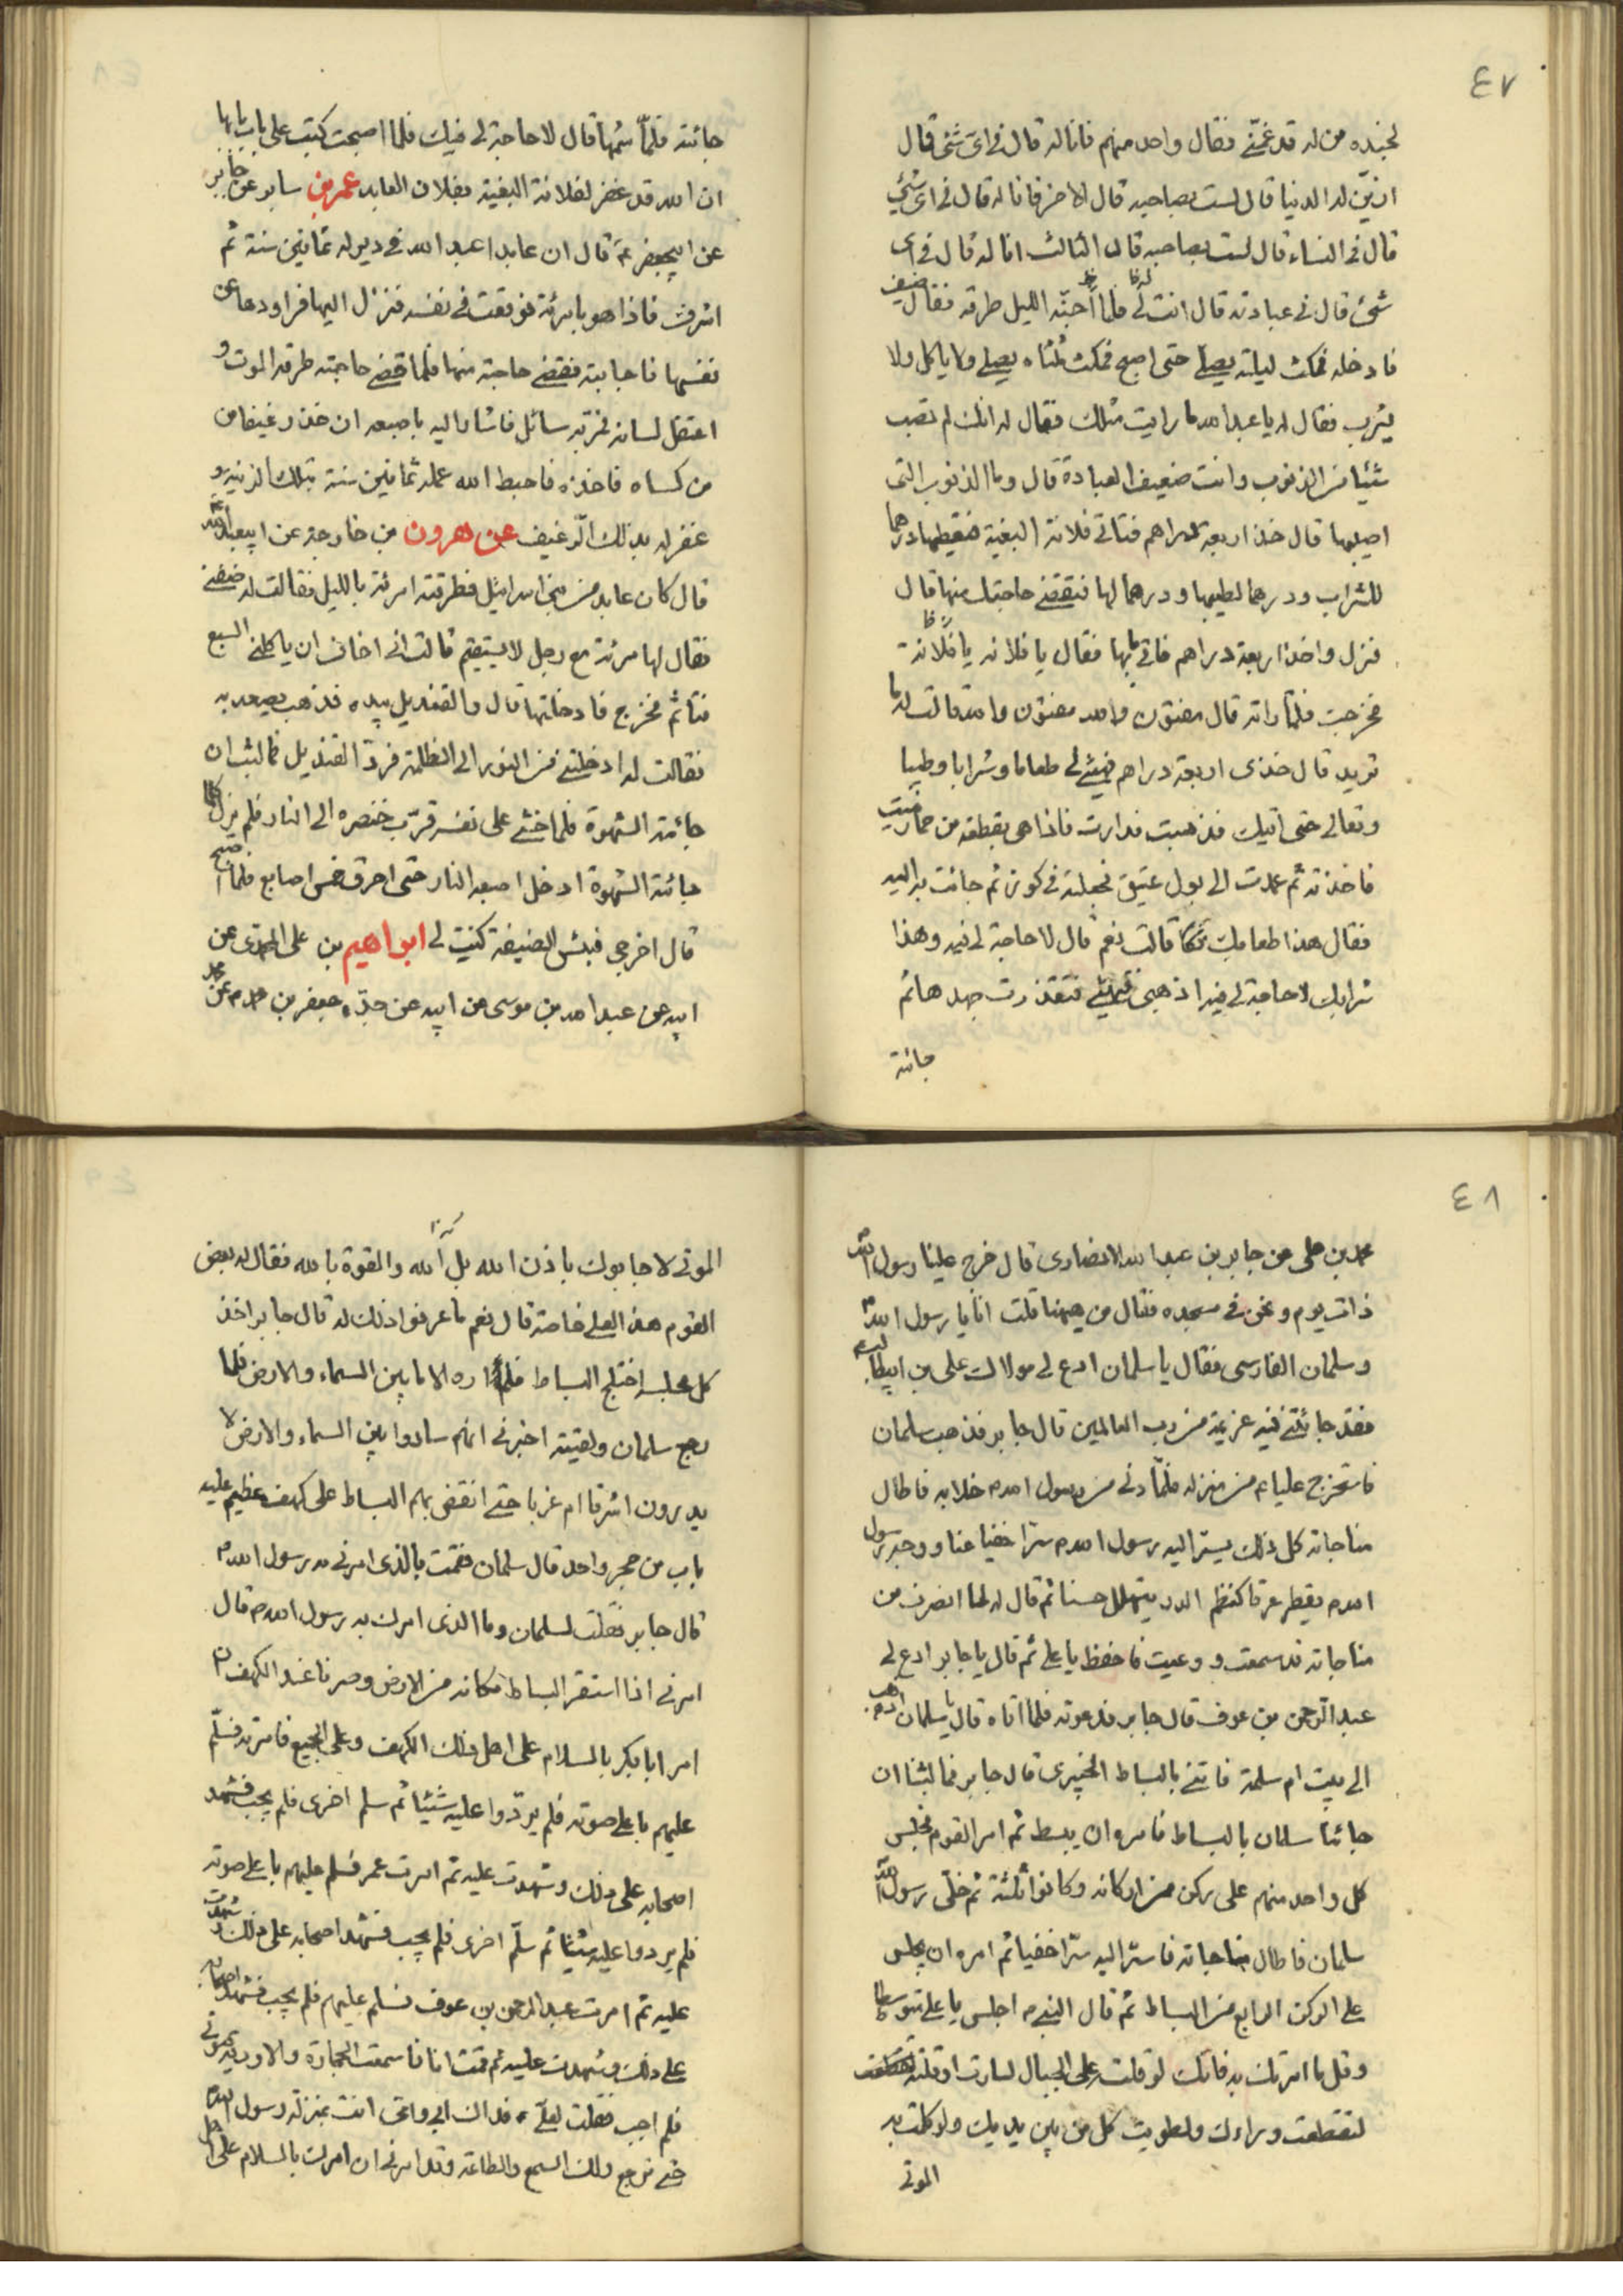 ٤٧
لجنده من له قد غمّني فقال واحد منهم فانا له قال في اي شئ قال
ازيّن له الدنيا قال لست بصاحبه قال الاخر فانا له قال في اي شئ
قال في النساء قال لست بصاحبه قال الثالث انا له قال في اي
شئ قال في عبادته قال انت له فلما جنّه الليل طرقه فقال ضيف
فادخله فمكث ليلته يصلي حتى اصبح فمكث ثلثا يصلي ولا ياكل ولا
يشرب فقال له يا عبد الله ما رايت مثلك فقال له انك لم تصب
شيئا من الذنوب وانت ضعيف العبادة قال وما الذنوب التي
اصيبها قال خذ اربعة دراهم فتاتي فلانة البغية فتعطيها درهما
للشراب ودرهما لطيبها ودرهما لها فتقضي حاجتك منها قال
فنزل واخذ اربعة دراهم فاتى بابها فقال يا فلانة يا فلانة
فخرجت فلما راته قال مفتون والله مفتون والله قالت له ما
تريد قال خذي اربعة دراهم فهيئي لي طعاما وشرابا وطيبا
وتعالي حتى اتيك فذهبت فدارت فاذا هي بقطعة من حمار ميت
فاخذته ثم عمدت الى بول عتيق فجعلته في كوز ثم جائت به اليه
فقال هذا طعامك قالت نعم قال لا حاجة لي فيه وهذا
شرابك لا حاجة لي فيه اذهبي فتهيئي فتقذرت جهدها ثم
جائته
جائته فلمّا شمّها قال لا حاجة لي فيك فلما اصبحت كتب على بابها
ان الله قد غفر لفلانة البغية بفلان العابد عمر بن سابر عن جابر
عن ابيجعفر ع قال ان عابدا عبد الله في دير له ثمانين سنة ثم
اشرف فاذا هو بامرئة فوقعت في نفسه فنزل اليها فراودها عن
نفسها فاجابته فقضى حاجته منها فلما قضى حاجته طرقه الموت و
اعتقل لسانه فمرّ به سائل فاشار اليه باصبعه ان خذ رغيفا من
من كساه فاخذه فاحبط الله عمله ثمانين سنة بتلك الزنية و
غفر له بذلك الرّغيف عن هرون بن خارجة عن ابيعبد الله
قال كان عابد من بني اسرائيل فطرقته امرئة بالليل فقالت له ضيفني
فقال لها امرئة مع رجل لا يستقيم قالت اني اخاف ان ياكلني السبع
فتاثم فخرج فادخلتها قال والقنديل بيده فذهب يصعد به
فقالت له ادخلتني من النور الى الظلمة فرد القنديل فما لبث ان
جائته الشهوة فلما خشي على نفسه قرّب خنصره الى النار فلم يزل كلما
جائته الشهوة ادخل اصبعه النار حتى احرق خمس اصابع فلما اصبح
قال اخرجي فبئس الضيفة كنت لي ابراهيم بن علي المحمدي عن
ابيه عن عبد الله بن موسى عن ابيه عن جدّه جعفر بن محمد عن
٤٨
محمد بن علي عن جابر بن عبد الله الانصاري قال خرج علينا رسول الله
ذات يوم ونحن في مسجده فقال من هيهنا قلت انا يا رسول الله
وسلمان الفارسي فقال يا سلمان ادع لي مولاك علي بن ابيطالب
فقد جائتني فيه عزيمة من رب العالمين قال جابر فذهب سلمان
فاستخرج عليا ع من منزله فلمّا دنى من رسول الله خلا به فاطال
مناجاته كل ذلك يسرّ اليه رسول الله سرّا خفيا عنا ووجه رسول
الله يقطر عرقا كنظم الدر يتهلل حسنا ثم قال له لما انصرف من
مناجاته قد سمعت ووعيت فاحفظ يا علي ثم قال يا جابر ادع لي
عبد الرّحمن بن عوف قال جابر فدعوته فلما اتاه قال يا سلمان اذهب
الى بيت ام سلمة فاتني بالبساط الخيبري قال جابر فما لبثنا ان
جائنا سلمان بالبساط فامره ان يبسط ثم امر القوم فجلس
كل واحد منهم على ركن من اركانه وكانوا ثلثة ثم خلّى رسول الله
سلمان فاطال مناجاته فاسرّ اليه سرّا خفيا ثم امره ان يجلس
على الركن الرابع من البساط ثم قال النبي اجلس يا علي متوسطا
وقل ما امرتك به فانك لو قلت على الجبال لسارت او قلته
لتقطعت وراءك ولطويت كل من بين يديك ولو كلمت به
الموتى
الموتى لاجابوك باذن الله بل الله والقوة بالله فقال له بعض
القوم هذا لعلي خاصة قال نعم ما عرفوا ذلك له قال جابر اخذ
كل مجلسه اختلج البساط فلم اره الا ما بين السماء والارض فلما
رجع سلمان ولقيته اخبرني انهم ساروا بين السماء والارض لا
يدرون اشرقا ام غربا حتى انقض بهم البساط على كهف عظيم عليه
باب من حجر واحد قال سلمان فقمت بالذي امرني به رسول الله
قال جابر فقلت لسلمان وما الذي امرك به رسول الله قال
امرني اذا استقر البساط مكانه من الارض وصرنا عند الكهف ان
امر ابا بكر بالسلام على اهل ذلك الكهف وعلى الجميع فامرته فسلّم
عليهم باعلى صوته فلم يردّوا عليه شيئا ثم سلم اخرى فلم يجب فشهد
اصحابه على ذلك وشهدت عليه ثم امرت عمر فسلم عليهم باعلى صوته
فلم يردوا عليه شيئا ثم سلّم اخرى فلم يجب فشهد اصحابه على ذلك وشهدت
عليه ثم امرت عبد الرحمن بن عوف فسلم عليهم فلم يجب فشهد اصحابه
على ذلك وشهدت عليه ثم قمت انا فاسمعت الحجارة والاودية صوتي
فلم اجب فقلت لعلي ع فداك ابي وامي انت بمنزلة رسول الله
حتى نرجع ولك السمع والطاعة وقد امرني ان امرك بالسلام على اهل